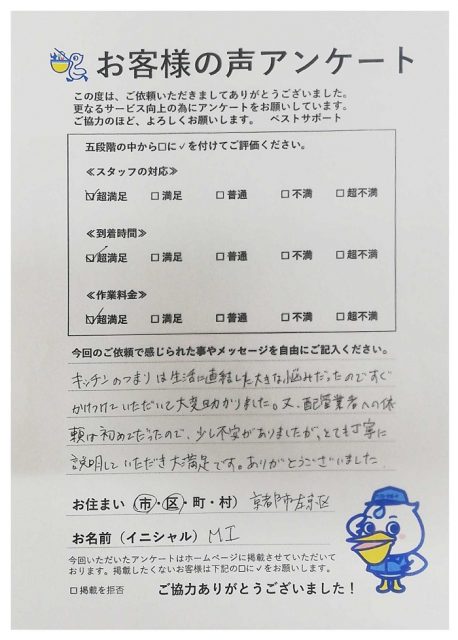 お客様の声アンケート
この度は、ご依頼いただきましてありがとうございました。
更なるサービス向上の為にアンケートをお願いしています。
ご協力のほど、よろしくお願いします。　ベストサポート
五段階の中から□に✓を付けてご評価ください。
≪スタッフの対応≫
☑超満足　□満足　□普通　□不満　□超不満
≪到着時間≫
☑超満足　□満足　□普通　□不満　□超不満
≪作業料金≫
☑超満足　□満足　□普通　□不満　□超不満
今回のご依頼で感じられた事やメッセージを自由にご記入ください。
キッチンのつまりは生活に直結した大きな悩みだったのですぐ
かけつけていただいて大変助かりました。又、配管業者への依
頼は初めてだったので、少し不安がありましたが、とても丁寧に
説明していただき大満足です。ありがとうございました
お住まい（市・区・町・村）　京都市左京区
お名前（イニシャル）　MI
今回いただいたアンケートはホームページに掲載させていただいて
おります。掲載したくないお客様は下記の□に✓をお願いします。
□掲載を拒否　ご協力ありがとうございました！